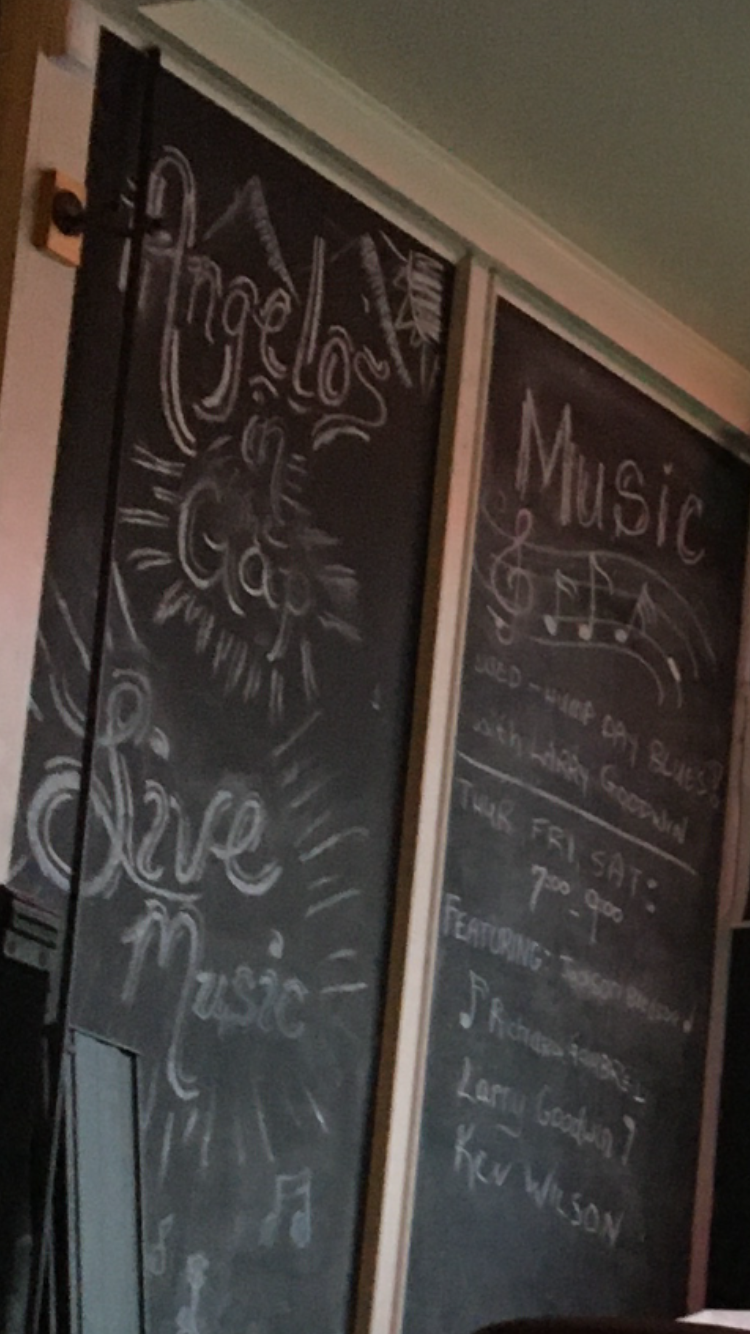 Angelos
in
Gap
Live
Music
Music
WED - HUMP DAY BLUES!
with LARRY GOODWIN
THUR FRI, SAT:
7:00 - 9:00
FEATURING:
Richard GAMBRELL
Larry Goodwin
Kev WILSON